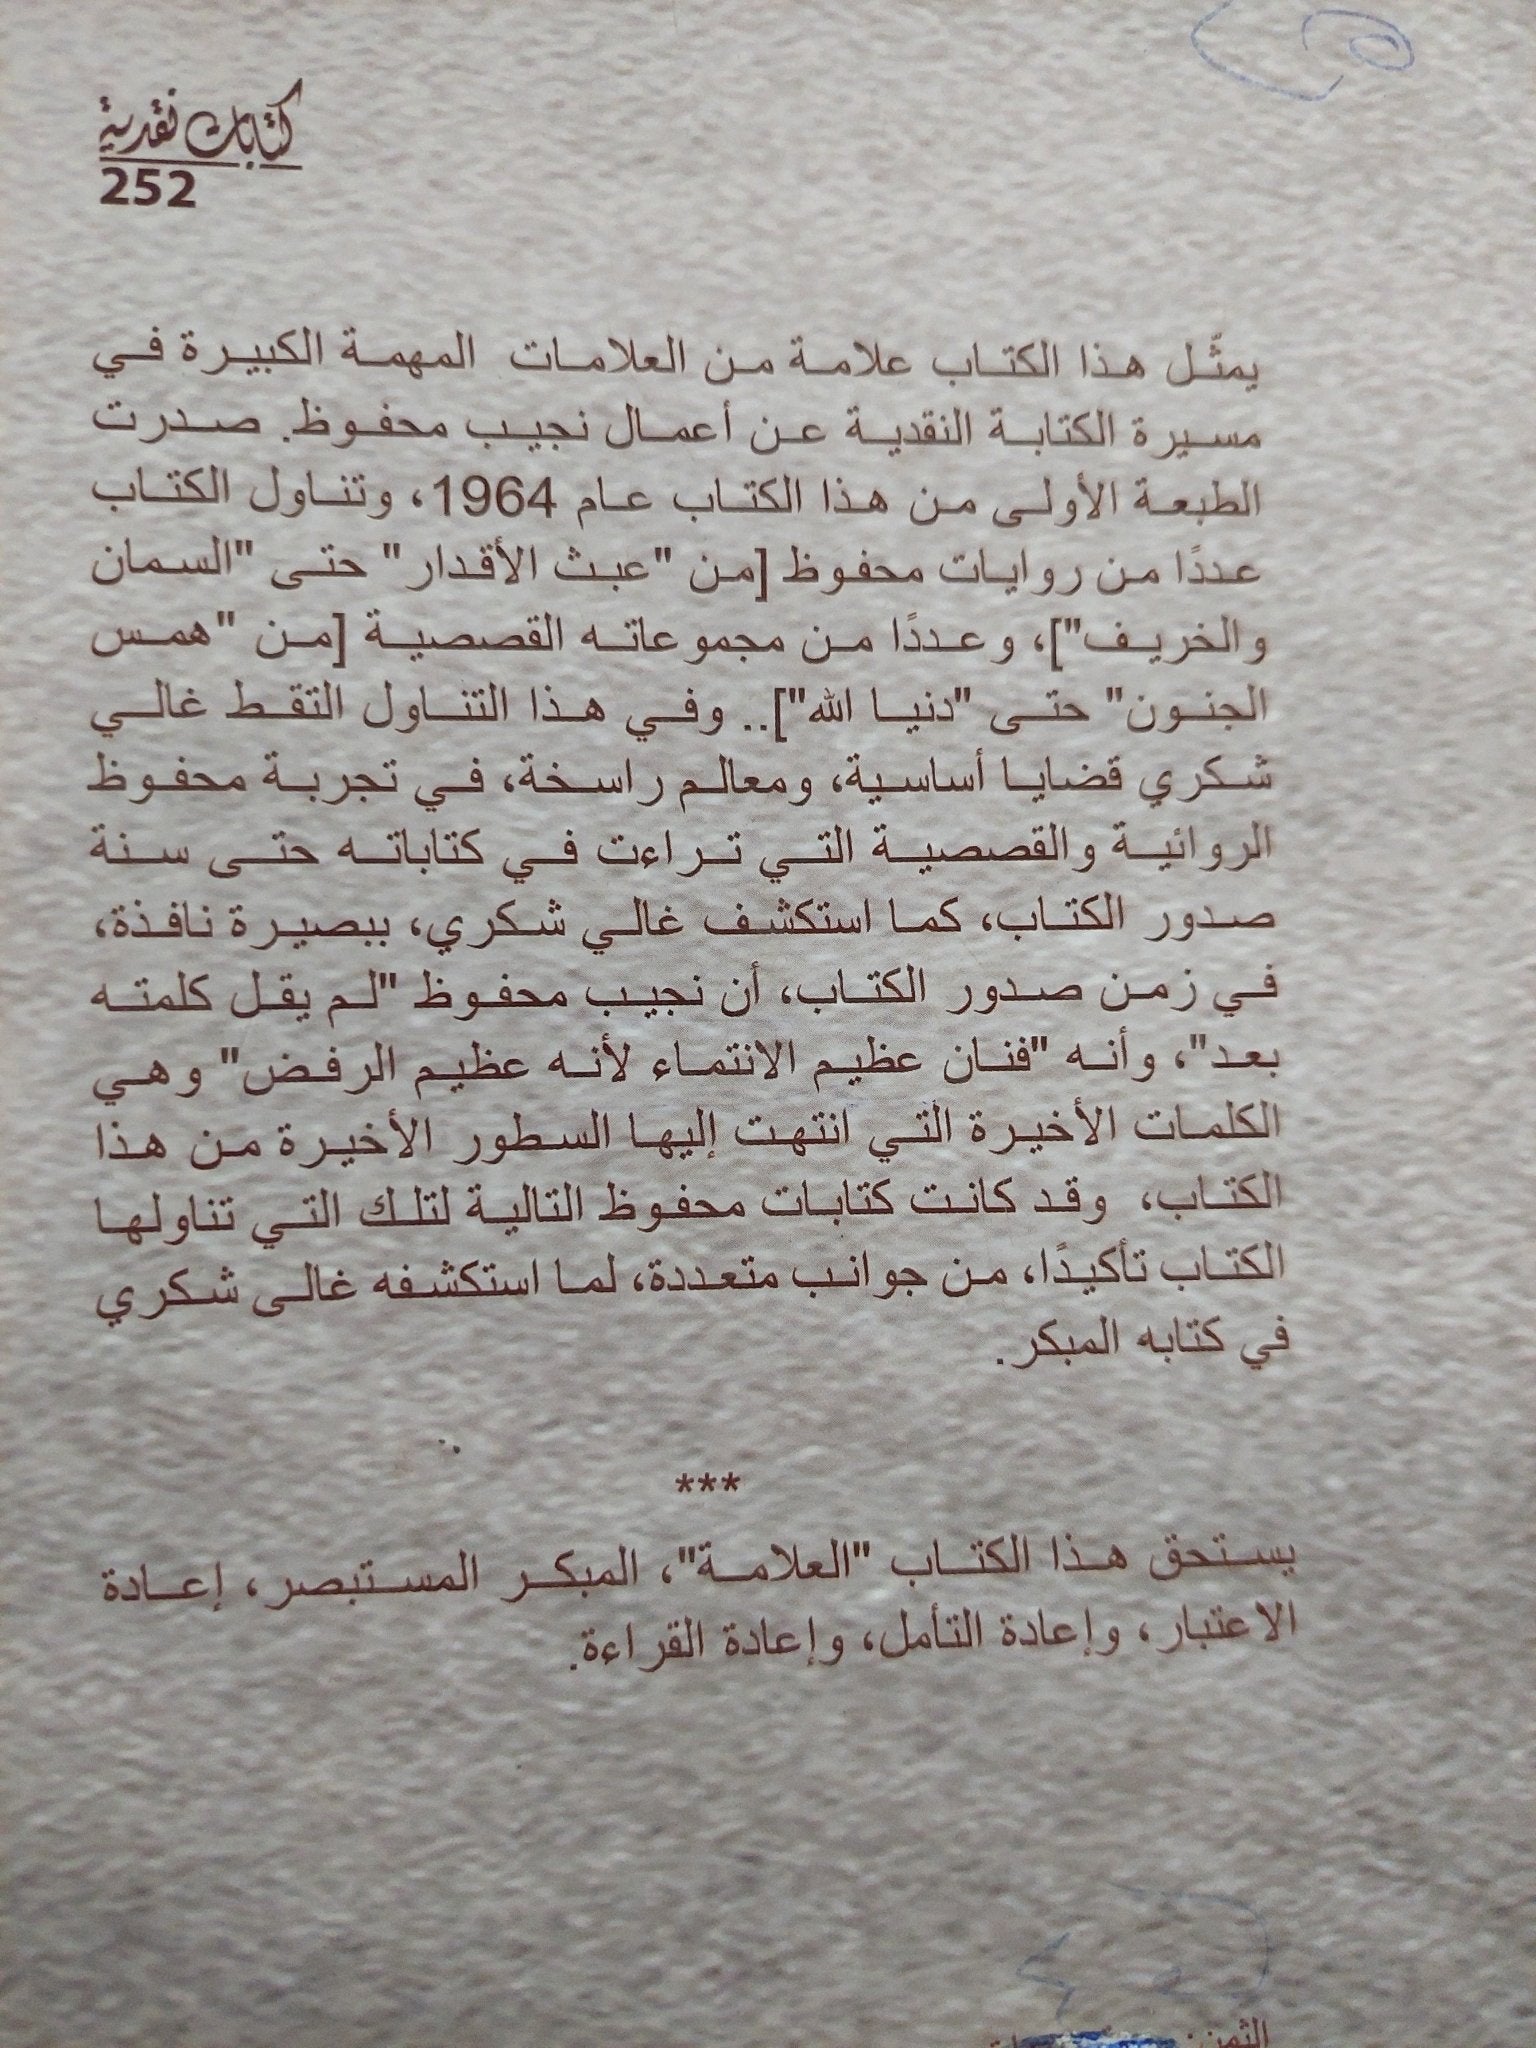 كتابات نقدية
252
يمثّل هذا الكتاب علامة من العلامات المهمة الكبيرة في
مسيرة الكتابة النقدية عن أعمال نجيب محفوظ. صدرت
الطبعة الأولى من هذا الكتاب عام 1964، وتناول الكتاب
عددًا من روايات محفوظ [من "عبث الأقدار" حتى "السمان
والخريف"]، وعددًا من مجموعاته القصصية [من "همس
الجنون" حتى "دنيا الله"].. وفي هذا التناول التقط غالي
شكري قضايا أساسية، ومعالم راسخة، في تجربة محفوظ
الروائية والقصصية التي تراءت في كتاباته حتى سنة
صدور الكتاب، كما استكشف غالي شكري، ببصيرة نافذة،
في زمن صدور الكتاب، أن نجيب محفوظ "لم يقل كلمته
بعد"، وأنه "فنان عظيم الانتماء لأنه عظيم الرفض" وهي
الكلمات الأخيرة التي انتهت إليها السطور الأخيرة من هذا
الكتاب، وقد كانت كتابات محفوظ التالية لتلك التي تناولها
الكتاب تأكيدًا، من جوانب متعددة، لما استكشفه غالى شكري
في كتابه المبكر.
***
يستحق هذا الكتاب "العلامة"، المبكر المستبصر، إعادة
الاعتبار، وإعادة التأمل، وإعادة القراءة.
الثمن: